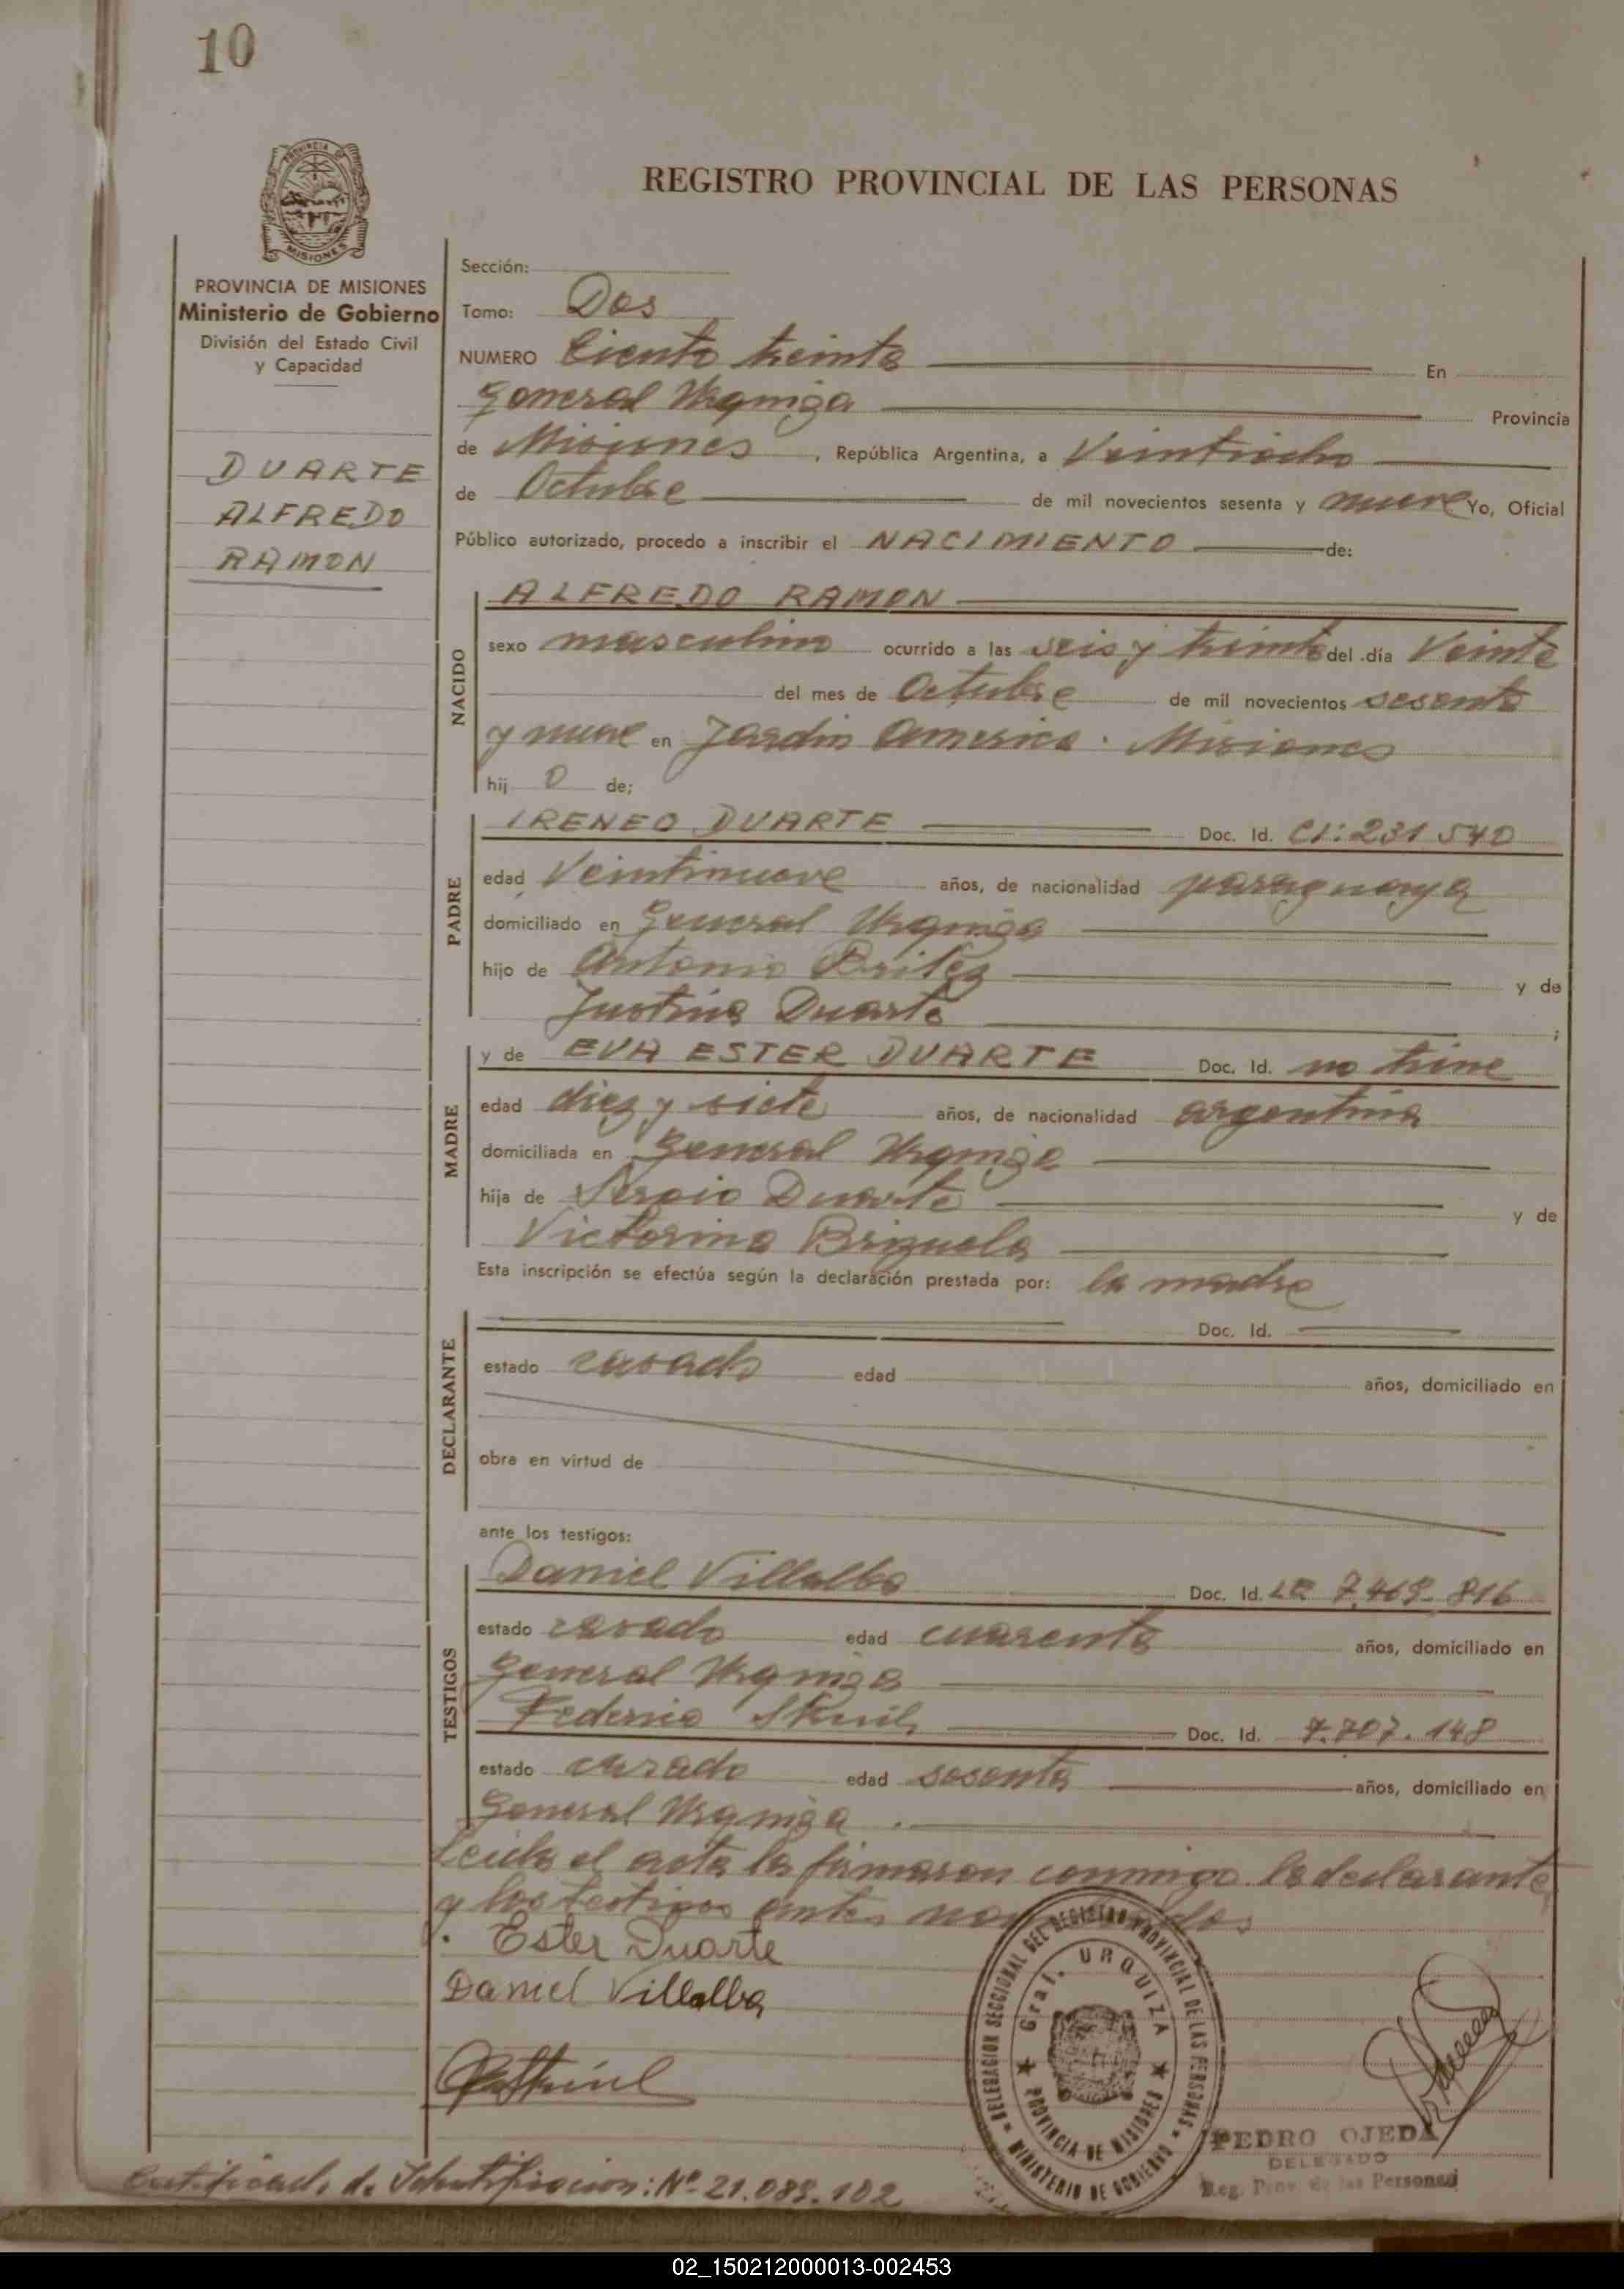 10
PROVINCIA DE MISIONES
REGISTRO PROVINCIAL DE LAS PERSONAS
PROVINCIA DE MISIONES
Ministerio de Gobierno
División del Estado Civil
y Capacidad
DUARTE
ALFREDO
RAMON
Sección:
Tomo: Dos
NUMERO Ciento treinta En
General Urquiza Provincia
de Misiones, República Argentina, a Veintiocho
de Octubre de mil novecientos sesenta y nueve Yo, Oficial
Público autorizado, procedo a inscribir el NACIMIENTO de:
NACIDO
ALFREDO RAMON
sexo masculino ocurrido a las seis y treinta del día Veinte
del mes de Octubre de mil novecientos sesenta
y nueve en Jardin America. Misiones
hij o de;
PADRE
IRENEO DUARTE Doc. Id. CI: 231 540
edad Veintinueve años, de nacionalidad paraguaya
domiciliado en General Urquiza
hijo de Antonio Britez y de
Justina Duarte ;
MADRE
y de EVA ESTER DUARTE Doc. Id. no tiene
edad diez y siete años, de nacionalidad argentina
domiciliada en General Urquiza
hija de Sergio Duarte y de
Victorina Brizuela
Esta inscripción se efectúa según la declaración prestada por: la madre
DECLARANTE
Doc. Id.
estado casado edad años, domiciliado en
obra en virtud de
ante los testigos:
TESTIGOS
Daniel Villalba Doc. Id. LE 7.469-816
estado casado edad cuarenta años, domiciliado en
General Urquiza
Federico Doc. Id. 7.707.148
estado casado edad sesenta años, domiciliado en
General Urquiza.
Leida el acta la firmaron conmigo la declarante
y los testigos antes
Ester Duarte
Daniel Villalba
DELEGACION SECCIONAL DEL REGISTRO PROVINCIAL DE LAS PERSONAS
MINISTERIO DE GOBIERNO
Gral. URQUIZA
PROVINCIA DE MISIONES
PEDRO OJEDA
DELEGADO
Reg. Prov. de las Personas
Certificado de Identificacion: Nº 21.089.102
02_150212000013-002453